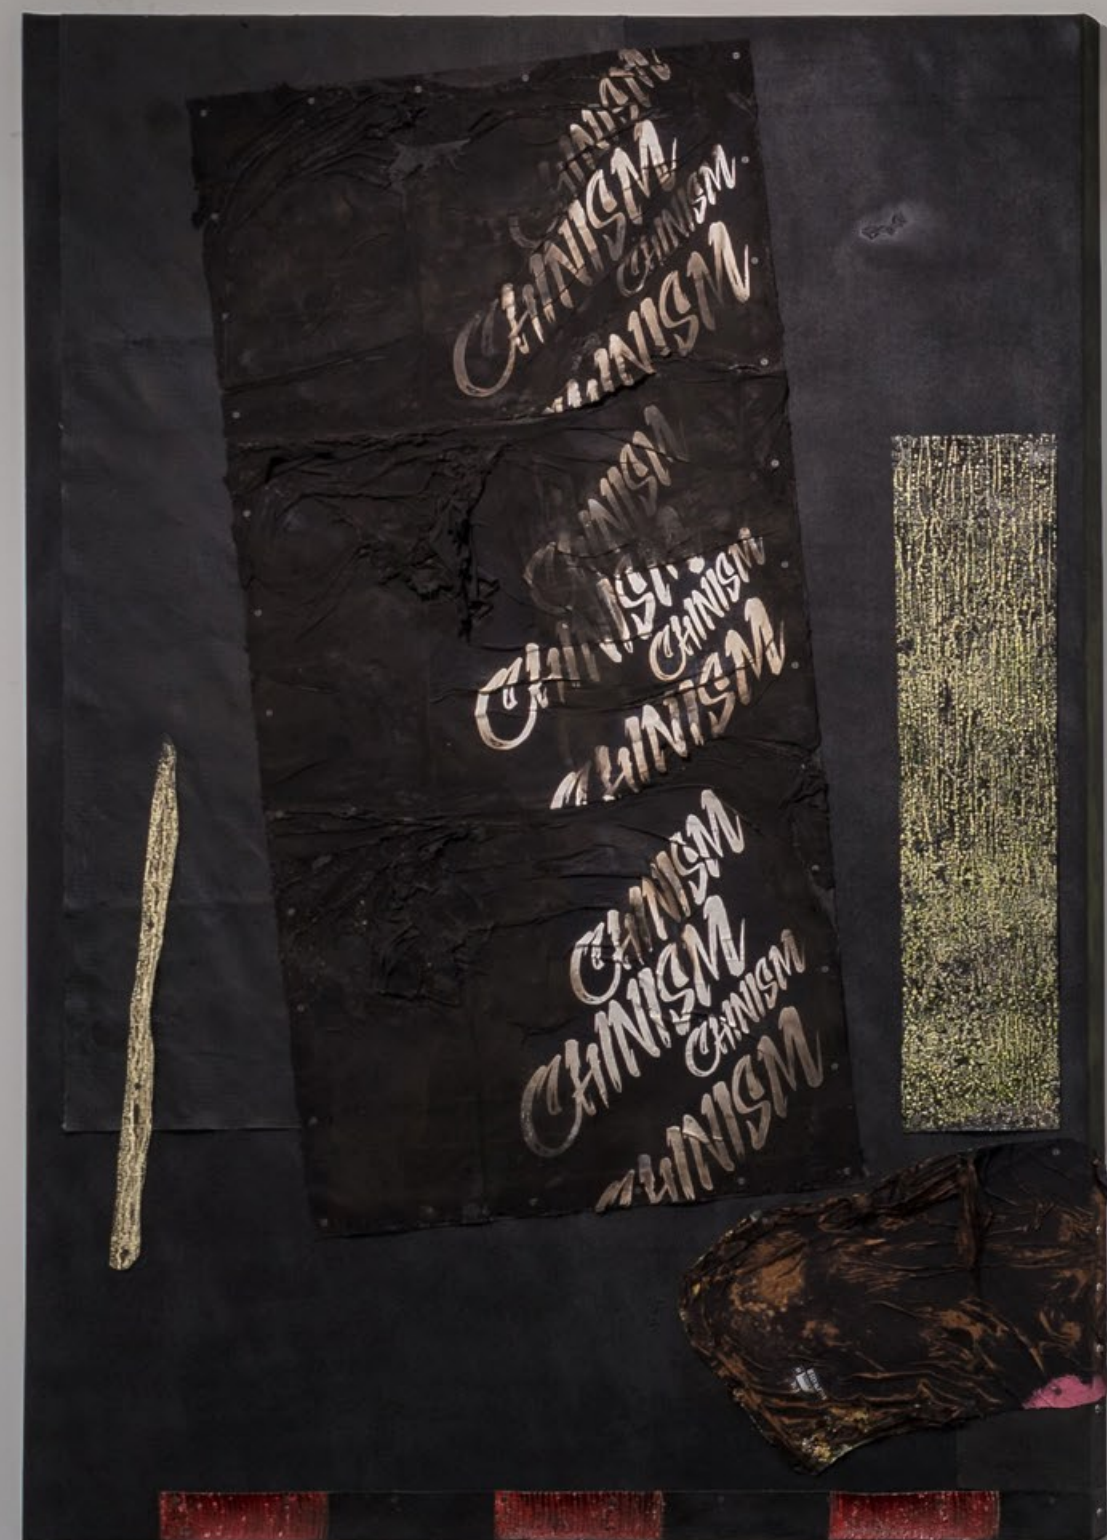 CHINISM
CHINISM
CHINISM
CHINISM
CHINISM
CHINISM
CHINISM
CHINISM
CHINISM
CHINISM
CHINISM
CHINISM